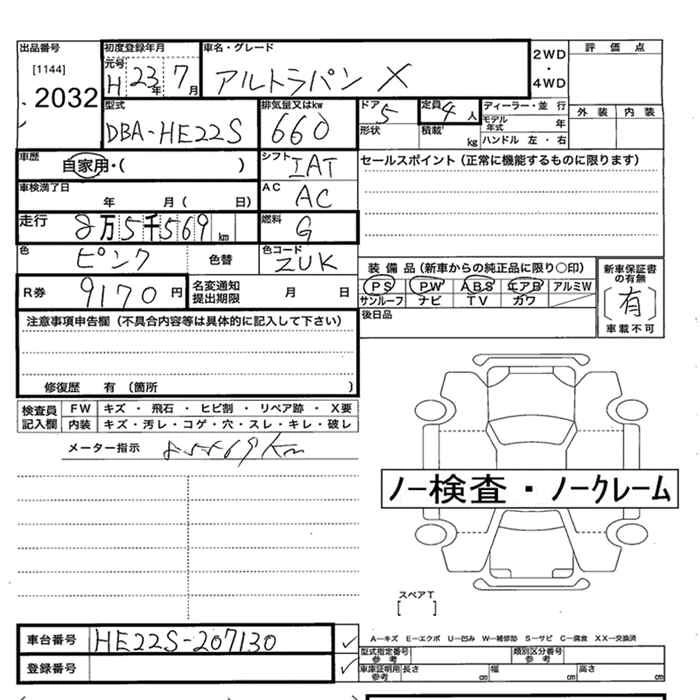 出品番号 初度登録年月 車名・グレード 評価点
[1144] 元号 2WD
2032 H 23年 7月 アルトラパン X ・
4WD
型式 排気量又はkw ドア 定員 ディーラー・並行 外装 内装
DBA-HE22S 660 5 4人 モデル年式 年
形状 積載 kg ハンドル 左・右
車歴 自家用・( ) シフト IAT セールスポイント (正常に機能するものに限ります)
車検満了日 年 月 ( 日) AC AC
走行 8万5千569km 燃料 G
色 ピンク 色替 色コード ZUK
装備品 (新車からの純正品に限り○印) 新車保証書の有無
R券 9170円 名変通知提出期限 月 日 PS PW ABS エアB アルミW (有)
サンルーフ ナビ TV カワ 車載不可
注意事項申告欄 (不具合内容等は具体的に記入して下さい) 後日品
修復歴 有 (箇所 )
検査員記入欄 FW キズ・飛石・ヒビ割・リペア跡・X要
内装 キズ・汚レ・コゲ・穴・スレ・キレ・破レ
メーター指示 85569km
ノー検査・ノークレーム
スペアT
[ ]
車台番号 HE22S-207130 A―キズ E―エクボ U―凹み W―補修跡 S―サビ C―腐食 XX―交換済
型式指定番号 参考 類別区分番号 参考
登録番号 車庫証明用 参考 長さ cm 幅 cm 高さ cm